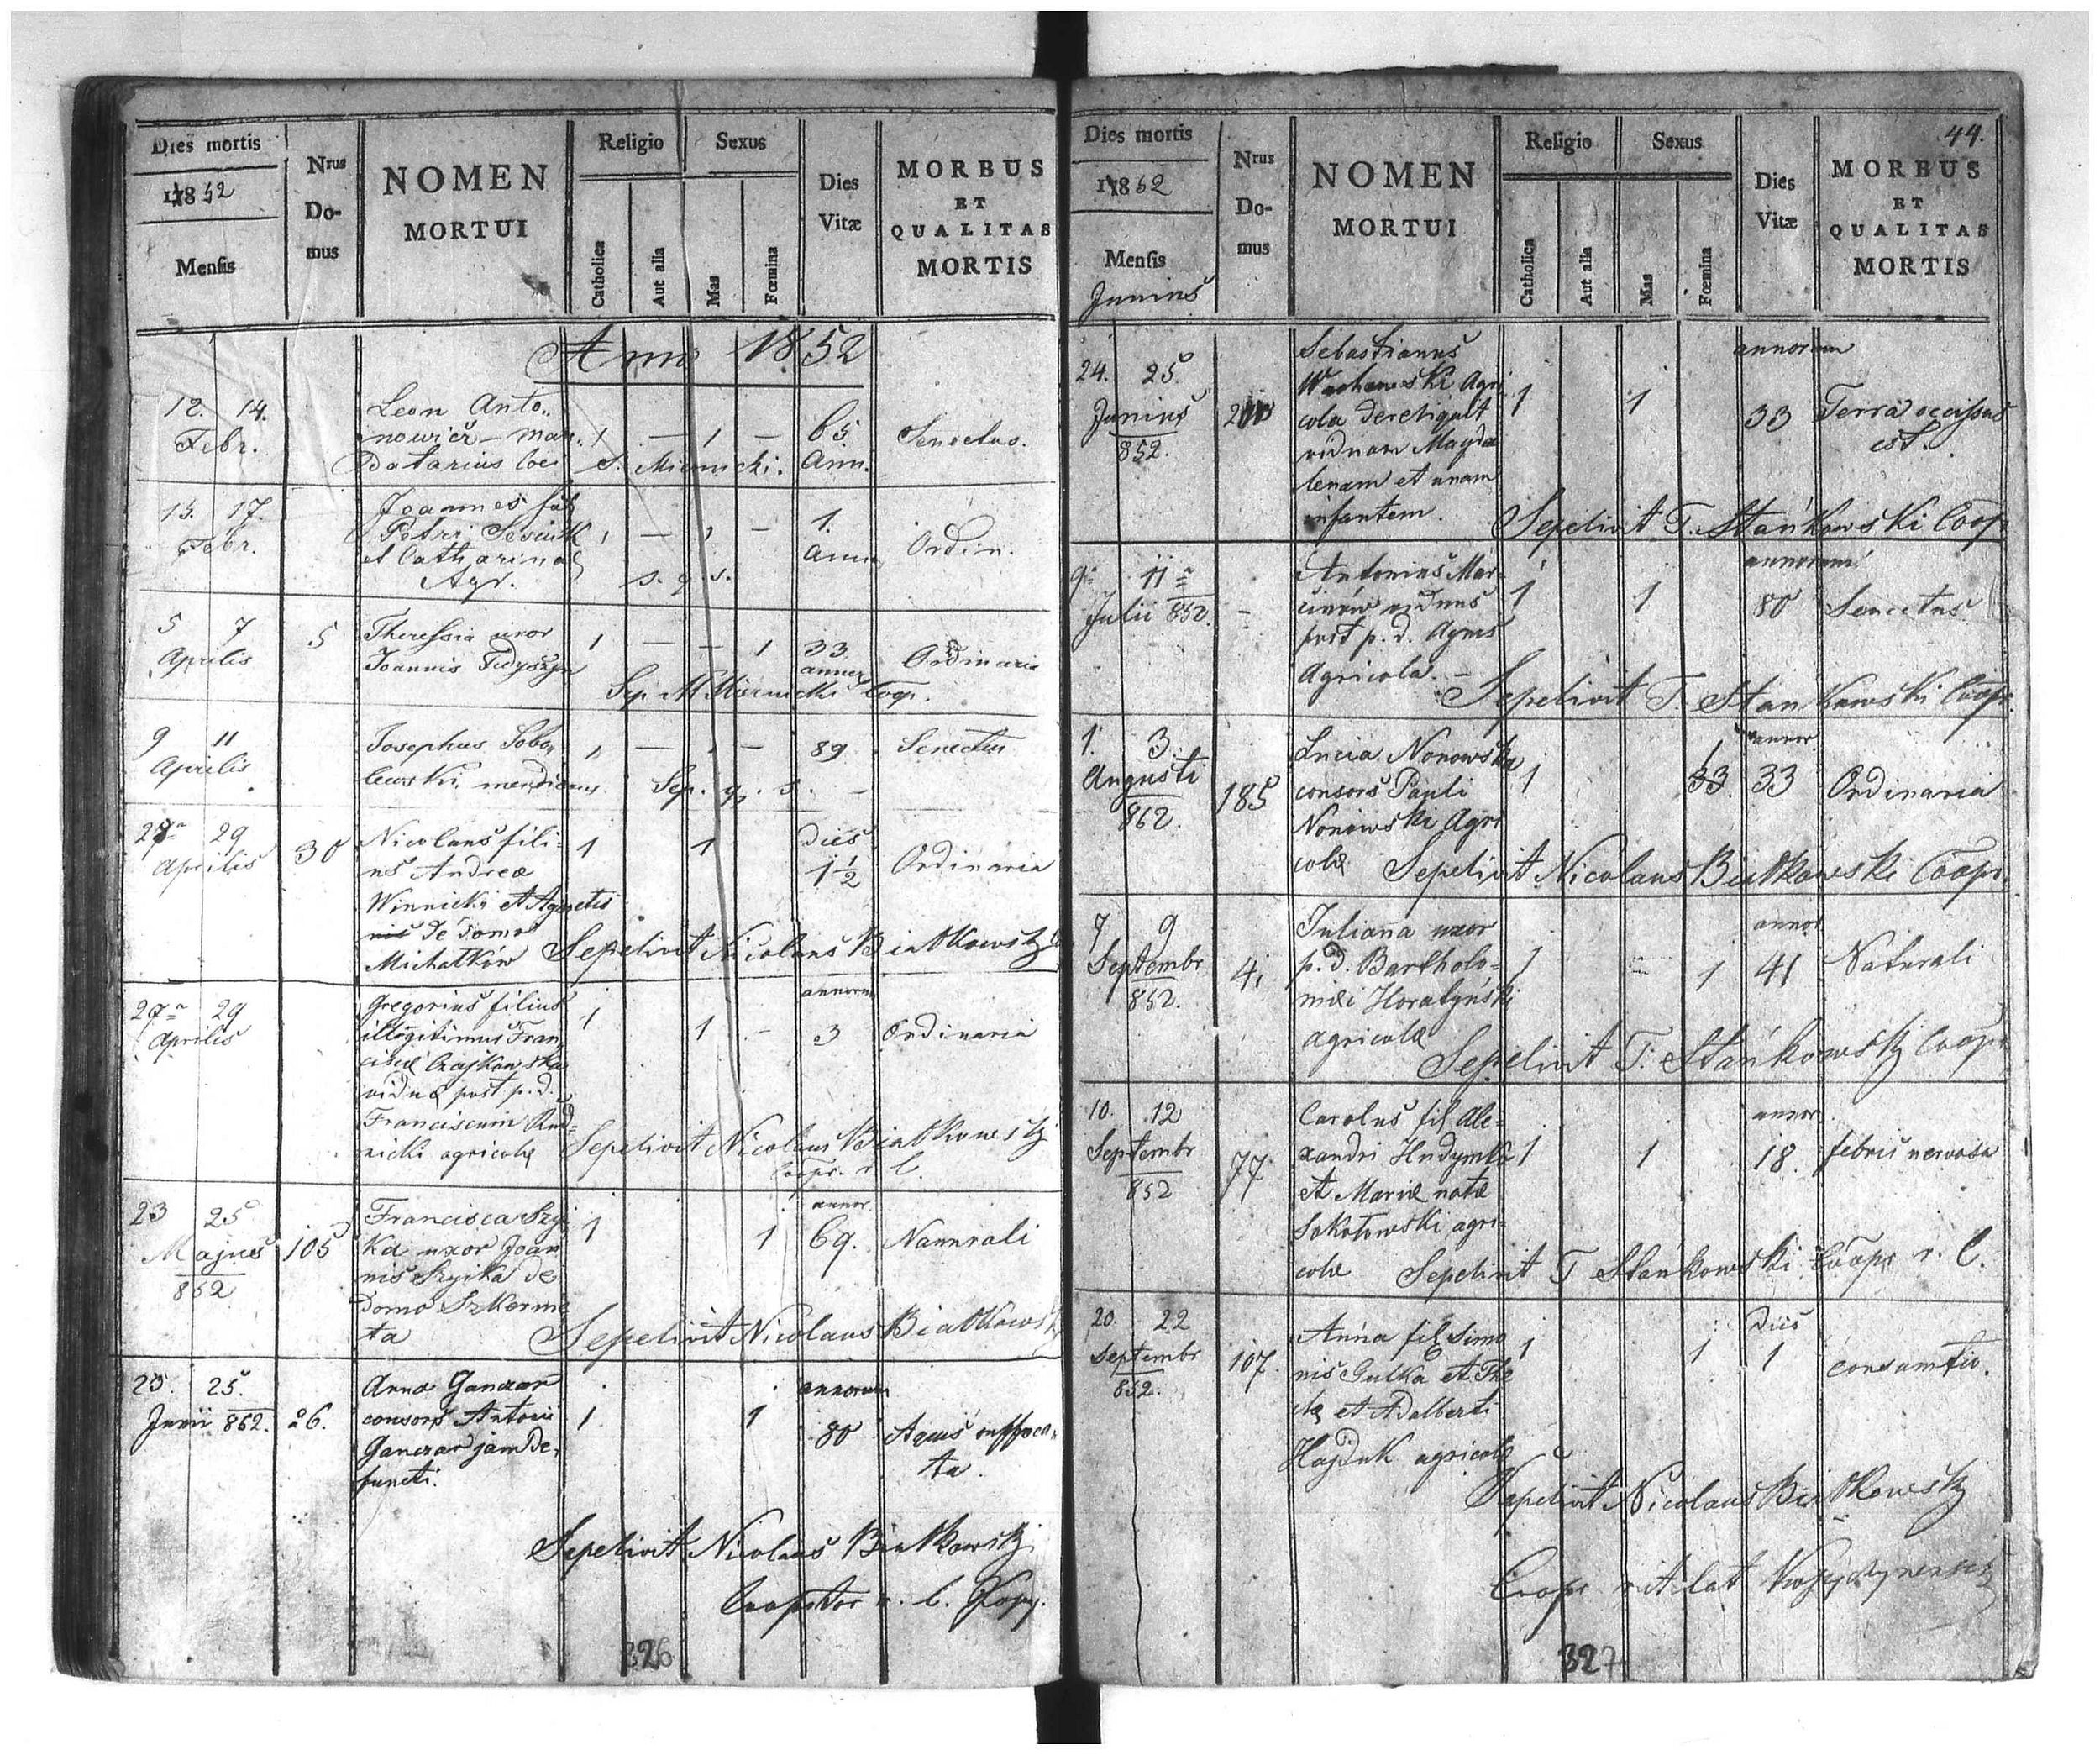 Dies mortis
1852
Mensis
Nrus Do- mus
NOMEN
MORTUI
Religio
Catholica
Aut alia
Sexus
Mas
Fœmina
Dies
Vitæ
MORBUS
ET
QUALITAS
MORTIS
Anno 1852
12. 14.
Febr.
Leon Anto..
nowicz - man
Datarius loci
1 — 1 —
65.
Ann.
Senectus.
S. Miernicki.
13. 17.
Febr.
Joannes fil
Petri
et Catharina
Agr.
1 — 1 —
1.
Anni
Ordin.
s. q. s.
5 7
Aprilis
5
Theressia uxor
Joannis Fedyszyn
1 — — 1
33
annor
Ordinaria
Sep M Miernicki Coop.
9 11
Aprilis
Josephus Sobo
lewski mendicans
1 — 1 —
89
Senectus
Sep. q. s.
27a 29
Aprilis
30
Nicolaus fili=
us Andreæ
Winnicki et Agnetis
de domo
Michałków
1
1
dies
1 1/2
Ordinaria
Sepelivit Nicolaus Białkowski
27a 29
Aprilis
Gregorius filius
illegitimus Fran
ciscæ Czajkowska
viduæ post p. d.
Franciscum Rud=
nicki agricolæ
1
1 —
annorum
3
Ordinaria
Sepelivit Nicolaus Białkowski
Coopr. r l.
23 25
Majus
852
105
Francisca Szyj
ka uxor Joan
nis Szyjka de
domo Szkermie
ta
1
1
annor.
69.
Naturali
Sepelivit Nicolaus Białkowski
25. 25.
Junii 852.
26.
Anna Ganczar
consors Antonii
Ganczar jam de,
functi.
1
1
annorum
80
Aquis suffoca,
ta.
Sepelivit Nicolaus Białkowski
Cooptor r. l. Kopy.
326
44.
Dies mortis
1852
Mensis
Junius
Nrus Do- mus
NOMEN
MORTUI
Religio
Catholica
Aut alia
Sexus
Mas
Fœmina
Dies
Vitæ
MORBUS
ET
QUALITAS
MORTIS
24. 25.
Junius
852.
Sebastianus
Wachowski Agri
cola dereliquit
viduam Magda
lenam et unam
infantem.
1
1
annorum
33
Terra occissus
est.
Sepelivit T. Stańkowski Coop
9a 11a
Julii 852.
—
Antonius Mar
cinów viduus
post p. d. Agnes
Agricola. —
1
1
annorum
80
Senectus
Sepelivit T. Stankowski Coopr.
1. 3.
Augusti
852.
185
Lucia Nonowska
consors Pauli
Nonowski Agri
colæ
1
1
annor
33
Ordinaria
Sepelivit Nicolaus Białkowski Coopr.
7 9
Septembr
852.
41
Juliana uxor
p. d. Bartholo=
mæi Horatyński
agricolæ
1
1
annor
41
Naturali
Sepelivit T. Stańkowski Coopr
10. 12
Septembr
852
77
Carolus fil Ale=
xandri Hudymka
et Mariæ natæ
Sokołowski agri=
colæ
1
1
annor.
18.
febris nervosa
Sepelivit T Stańkowski Coopr r. l.
20. 22
Septembr
852.
107.
Anna fil Simo
nis Gulka et The
clæ et Adalberti
Hajduk agricolæ
1
1
Dies
1
consumtio.
Sepelivit Nicolaus Białkowski
Coopr rit lat
327